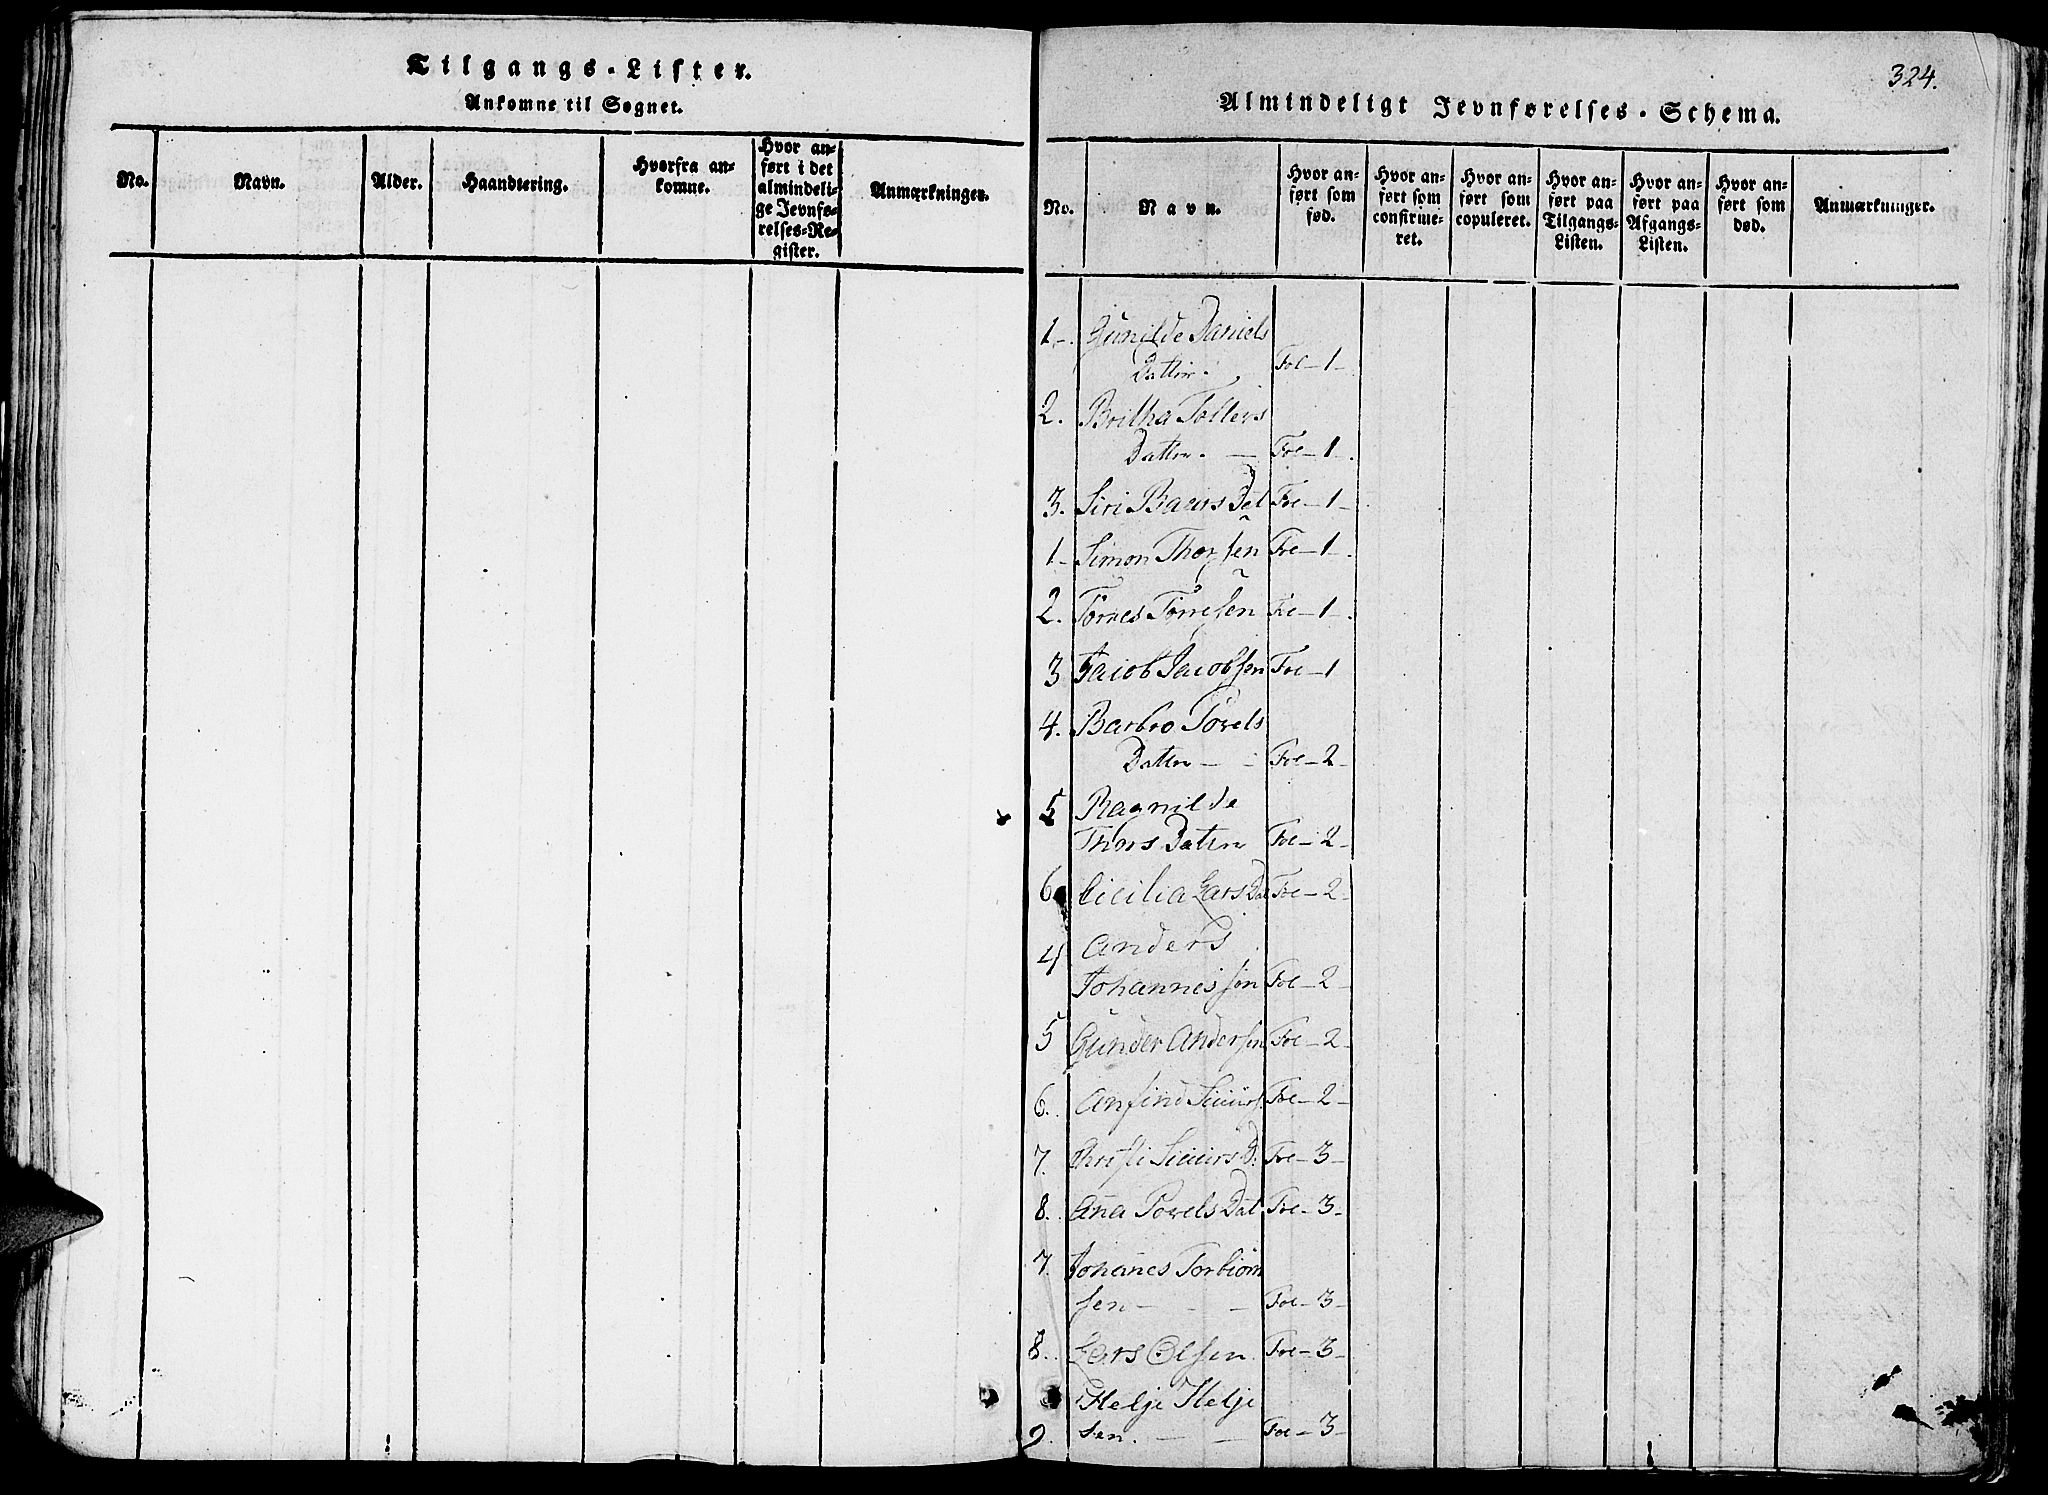 Tilgangs-Lister.
Ankomne til Sognet.
No.
Navn.
Alder.
Haandtering.
Hvorfra an-
komne.
Hvor an-
ført i det
almindeli-
ge Jevnfø-
relses-Re-
gister.
Anmærkninger.
324.
Almindeligt Jevnførelses-Schema.
No.
Navn.
Hvor an-
ført som
fød.
Hvor an-
ført som
confirme-
ret.
Hvor an-
ført som
copuleret.
Hvor an-
ført paa
Tilgangs-
Listen.
Hvor an-
ført paa
Afgangs-
Listen.
Hvor an-
ført som
død.
Anmærkninger.
1. Gunilde Daniels
Datter. Fol-1-
2. Britha Tollevs
Datter. - Fol-1.
3. Siri Baars Dat Fol-1-
1- Simon Thorsen Fol-1-.
2. Tørres Tørresen Fol-1-.
3 Jacob Jacobsen Fol-1
4. Barbro Povels
Datter - - Fol-2-
5 Ragnilde
Thors Datter Fol-2-
6. Cicilia Lars Dat Fol-2-
4 Anders
Johannessen Fol-2-
5 Gunder Andersen Fol-2-
6. Anfind Siurs. Fol-2-
7. Christi Siurs D: Fol-3-
8. Ana Povels Dat Fol-3-
7. Johanes Torbiørn
sen - - - Fol-3-
8. Lars Olsen Fol-3-
Helje Helje
9. sen. - - Fol-3-